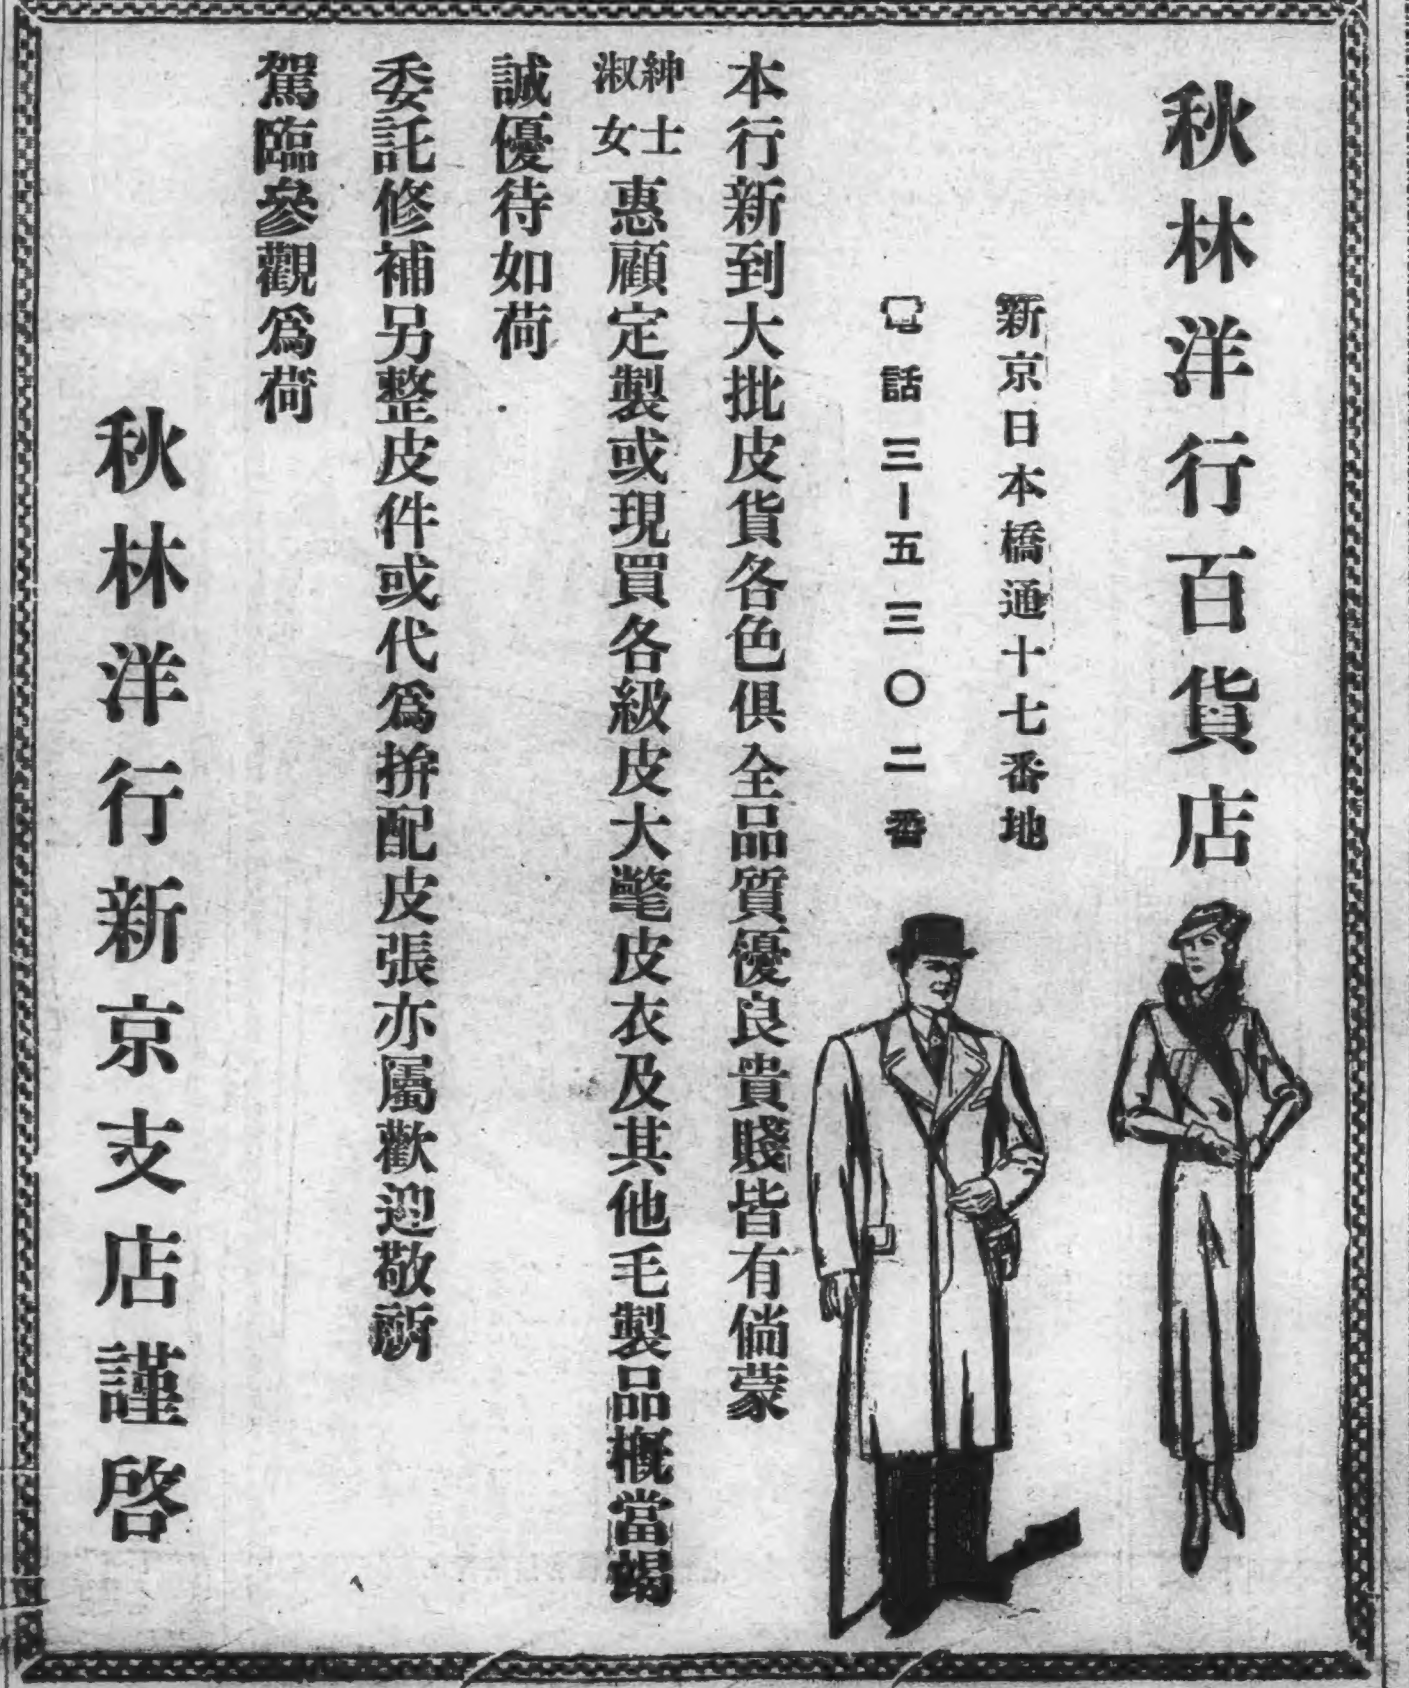 秋林洋行百貨店
新京日本橋通十七番地
電話三-五三〇二番
本行新到大批皮貨各色俱全品質優良貴賤皆有倘蒙
紳士
淑女
惠顧定製或現買各級皮大氅皮衣及其他毛製品概當竭
誠優待如荷
委託修補另整皮件或代爲拚配皮張亦屬歡迎敬祈
駕臨參觀爲荷
秋林洋行新京支店謹啓